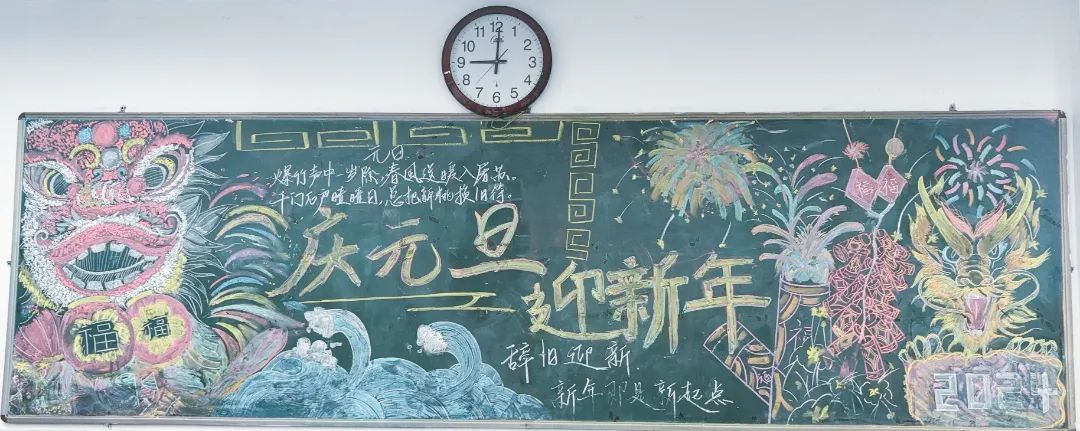 12 1 2 3 4 5 6 7 8 9 10 11
元日
爆竹声中一岁除,春风送暖入屠苏。
千门万户曈曈日,总把新桃换旧符。
庆元旦
迎新年
辞旧迎新
新年即是新起点
福
福
福
福
福
2024